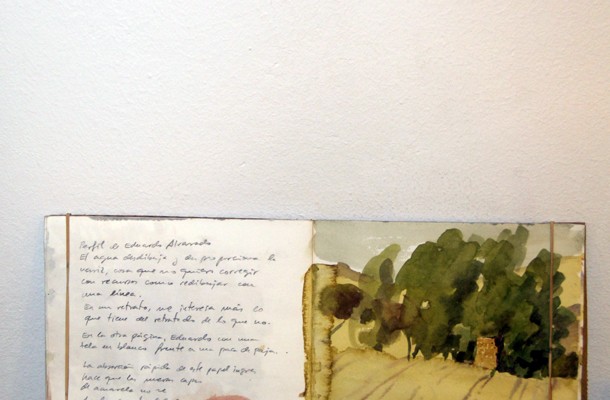 Perfil de Eduardo Alvarado
El agua desdibuja y desproporciona la
cosa que no quiero corregir
con recursos como redibujar con
una línea.
Es un retrato, me interesa más lo
que tiene del retratado de lo que no.
En la otra página, Eduardo con una
tela en blanco frente a una paca de paja.
La absorción rápida de este papel logra
hace que la primera capa
de acuarela no se